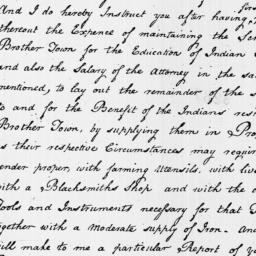 And I do hereby Instruct you after having
thereout the Expence of maintaining the
Brother Town for the Education of Indian
and also the Salary of the Attorney in the sa
mentioned, to lay out the remainder of the s
to and for the Benefit of the Indians resi
Brother Town, by supplying them in Prop
as their respective Circumstances may requir
ender proper, with farming utensils, with liv
with a Blacksmiths Shop and with the o
Tools and Instruments necessary for that
together with a moderate supply of Iron. And
will make to me a particular Report of yo